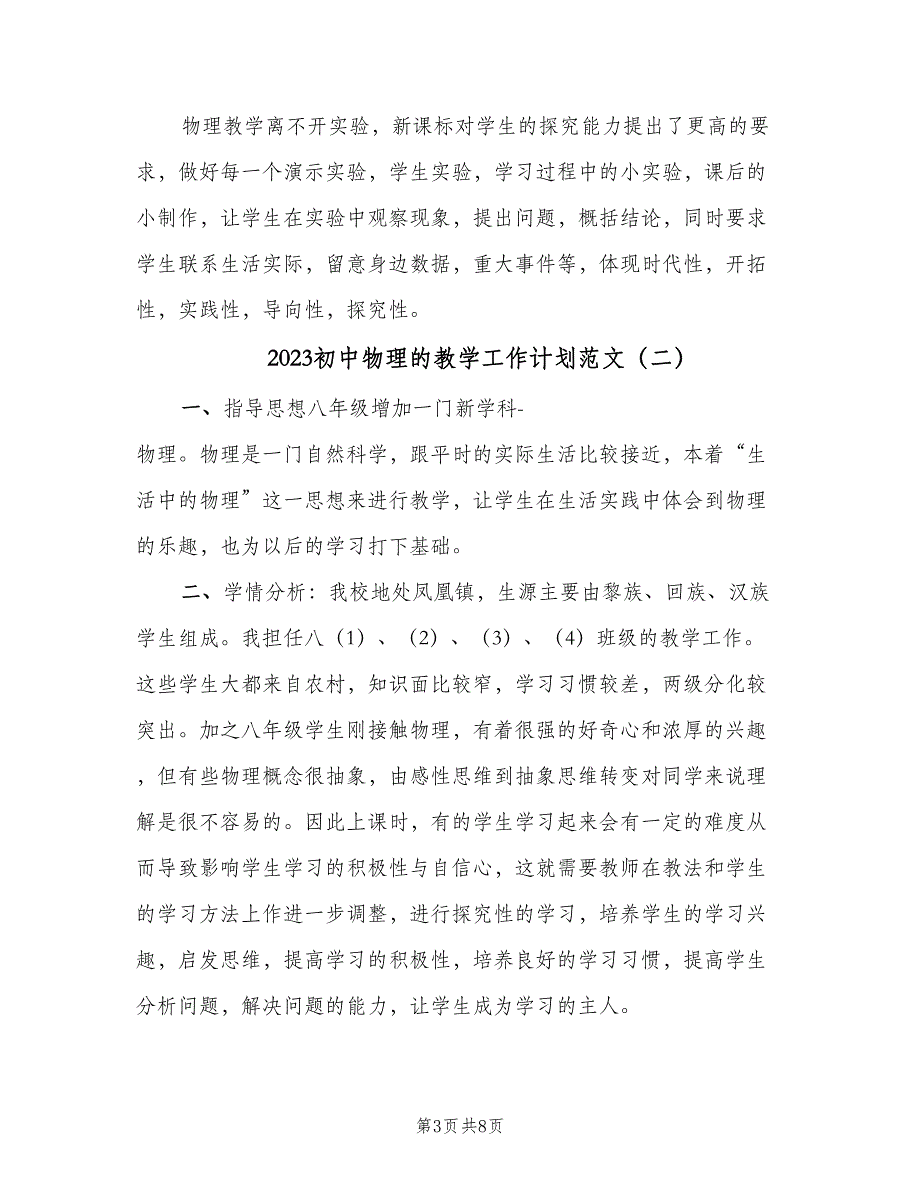 物理教学离不开实验，新课标对学生的探究能力提出了更高的要
求，做好每一个演示实验，学生实验，学习过程中的小实验，课后的
小制作，让学生在实验中观察现象，提出问题，概括结论，同时要求
学生联系生活实际，留意身边数据，重大事件等，体现时代性，开拓
性，实践性，导向性，探究性。
2023初中物理的教学工作计划范文（二）
一、指导思想八年级增加一门新学科-
物理。物理是一门自然科学，跟平时的实际生活比较接近，本着“生
活中的物理”这一思想来进行教学，让学生在生活实践中体会到物理
的乐趣，也为以后的学习打下基础。
二、学情分析：我校地处凤凰镇，生源主要由黎族、回族、汉族
学生组成。我担任八（1）、（2）、（3）、（4）班级的教学工作。
这些学生大都来自农村，知识面比较窄，学习习惯较差，两级分化较
突出。加之八年级学生刚接触物理，有着很强的好奇心和浓厚的兴趣
，但有些物理概念很抽象，由感性思维到抽象思维转变对同学来说理
解是很不容易的。因此上课时，有的学生学习起来会有一定的难度从
而导致影响学生学习的积极性与自信心，这就需要教师在教法和学生
的学习方法上作进一步调整，进行探究性的学习，培养学生的学习兴
趣，启发思维，提高学习的积极性，培养良好的学习习惯，提高学生
分析问题，解决问题的能力，让学生成为学习的主人。
第3页 共8页